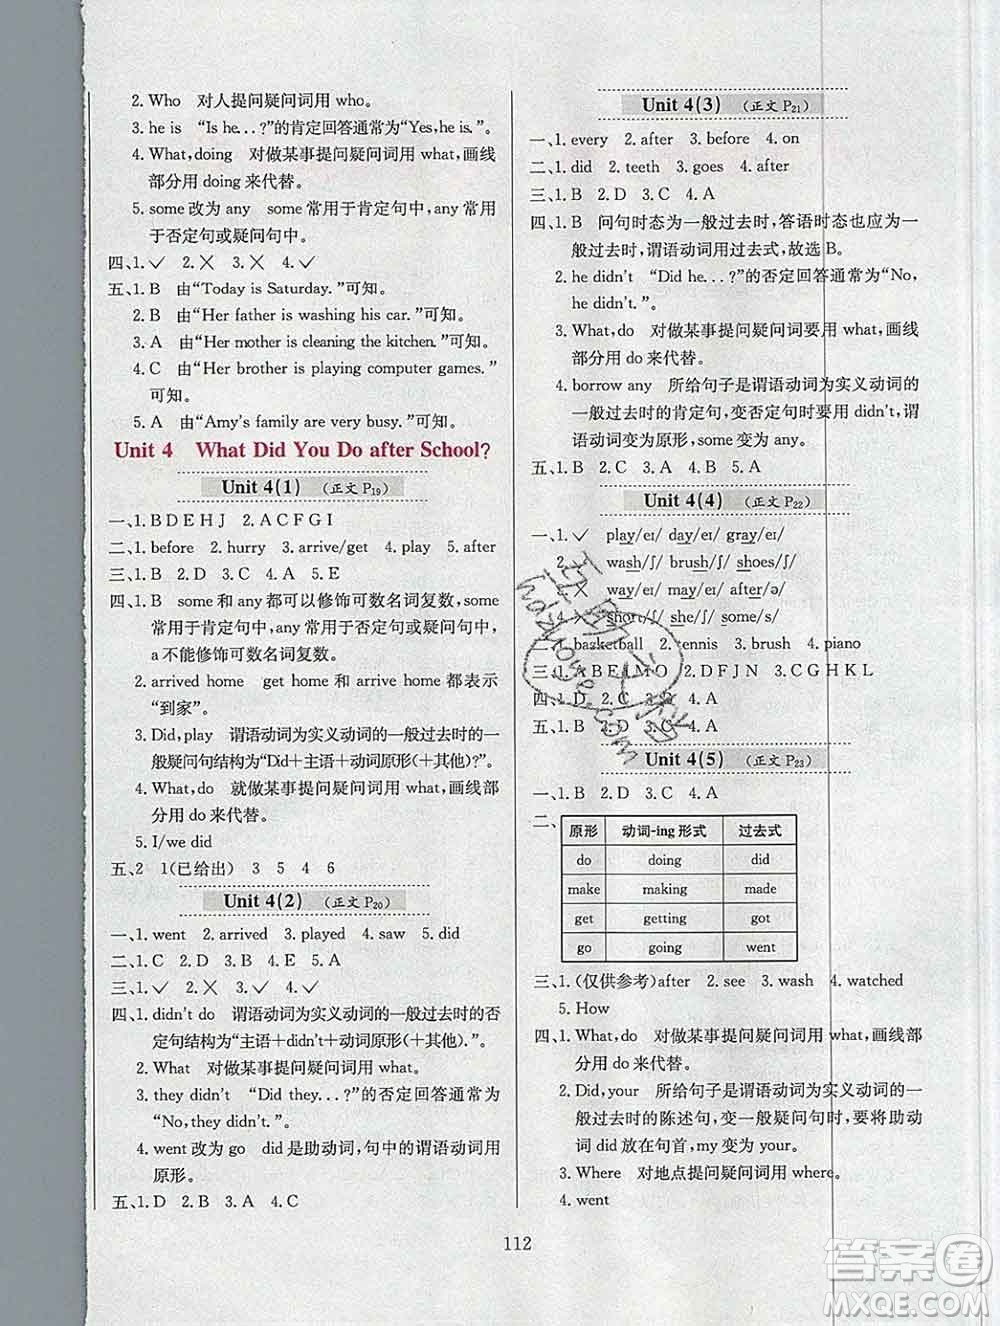 2. Who 对人提问疑问词用 who。
3. he is “Is he...?”的肯定回答通常为“Yes, he is.”。
4. What, doing 对做某事提问疑问词用 what,画线
部分用 doing 来代替。
5. some 改为 any some 常用于肯定句中, any 常用
于否定句或疑问句中。
四、1. ✓ 2. ✗ 3. ✗ 4. ✓
五、1. B 由“Today is Saturday.”可知。
2. B 由“Her father is washing his car.”可知。
3. A 由“Her mother is cleaning the kitchen.”可知。
4. C 由“Her brother is playing computer games.”
可知。
5. A 由“Amy's family are very busy.”可知。
Unit 4 What Did You Do after School?
Unit 4(1) (正文 P19)
一、1. B D E H J 2. A C F G I
二、1. before 2. hurry 3. arrive/get 4. play 5. after
三、1. D 2. B 3. C 4. A 5. E
四、1. B some 和 any 都可以修饰可数名词复数, some
常用于肯定句中, any 常用于否定句或疑问句中,
a 不能修饰可数名词复数。
2. arrived home get home 和 arrive home 都表示
“到家”。
3. Did, play 谓语动词为实义动词的一般过去时的一
般疑问句结构为“Did+主语+动词原形(+其他)?”。
4. What, do 就做某事提问疑问词用 what,画线部
分用 do 来代替。
5. I/we did
五、2 1(已给出) 3 5 4 6
Unit 4(2) (正文 P20)
一、1. went 2. arrived 3. played 4. saw 5. did
二、1. C 2. D 3. B 4. A
三、1. ✓ 2. ✗ 3. ✓ 4. ✓
四、1. didn't do 谓语动词为实义动词的一般过去时的否
定句结构为“主语+didn't+动词原形(+其他).”。
2. What 对做某事提问疑问词用 what。
3. they didn't “Did they...?”的否定回答通常为
“No, they didn't.”。
4. went 改为 go did 是助动词,句中的谓语动词用
原形。
五、1. D 2. B 3. A 4. C
Unit 4(3) (正文 P21)
一、1. every 2. after 3. before 4. on
二、1. did 2. teeth 3. goes 4. after
三、1. B 2. D 3. C 4. A
四、1. B 问句时态为一般过去时,答语时态也应为一
般过去时,谓语动词用过去式,故选 B。
2. he didn't “Did he...?”的否定回答通常为“No,
he didn't.”。
3. What, do 对做某事提问疑问词要用 what,画线
部分用 do 来代替。
4. borrow any 所给句子是谓语动词为实义动词的
一般过去时的肯定句,变否定句时要用 didn't,谓
语动词变为原形, some 变为 any。
五、1. B 2. C 3. B 4. B 5. A
Unit 4(4) (正文 P22)
一、1. ✓ play/eɪ/ day/eɪ/ gray/eɪ/
2. wash/ʃ/ brush/ʃ/ shoes/ʃ/
3. ✗ way/eɪ/ may/eɪ/ after/ə/
4. ✗ short/ʃ/ she/ʃ/ some/s/
二、1. basketball 2. tennis 3. brush 4. piano
三、1. A B E I M O 2. D F J N 3. C G H K L
四、1. D 2. C 3. B 4. A
五、1. B 2. D 3. C 4. A
Unit 4(5) (正文 P23)
一、1. B 2. D 3. C 4. A
二、
原形 动词-ing 形式 过去式
do doing did
make making made
get getting got
go going went
三、1. (仅供参考)after 2. see 3. wash 4. watched
5. How
四、1. What, do 对做某事提问疑问词用 what,画线部
分用 do 来代替。
2. Did, your 所给句子是谓语动词为实义动词的一
般过去时的陈述句,变一般疑问句时,要将助动
词 did 放在句首, my 变为 your。
3. Where 对地点提问疑问词用 where。
4. went
112
答案圈
MXQE.COM